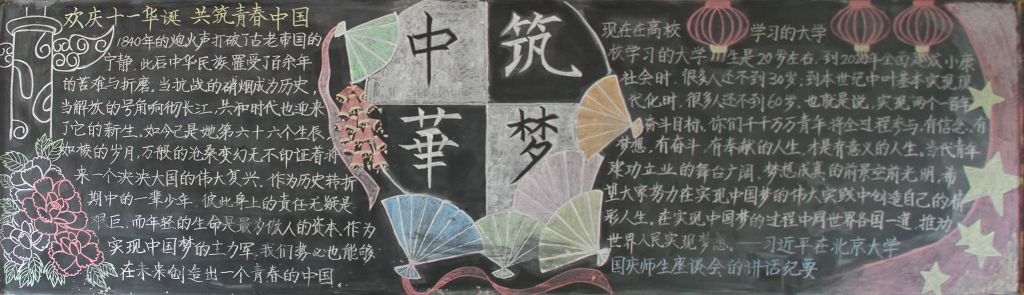 欢庆十一华诞 共筑青春中国
1840年的炮火声打破了古老帝国的
宁静,此后中华民族罹受了百余年
的苦难与折磨,当抗战的硝烟成为历史,
当解放的号角响彻长江,共和时代也迎来
了它的新生,如今已是她第六十六个生辰,
如梭的岁月,万般的沧桑变幻无不印证着将
来一个泱泱大国的伟大复兴。作为历史转折
期中的一辈少年,彼此身上的责任无疑是
艰巨,而年轻的生命是最为傲人的资本,作为
实现中国梦的主力军,我们势必也能够
在未来创造出一个青春的中国。
中 筑
華 梦
现在在高校 学习的大学
校学习的大学 生是20岁左右,到2020年全面建成小康
社会时,很多人还不到30岁;到本世纪中叶基本实现现
代化时,很多人还不到60岁。也就是说,实现两个一百年
奋斗目标,你们千千万万青年将全过程参与。有信念、有
梦想、有奋斗、有奉献的人生,才是有意义的人生。当代青年
建功立业的舞台广阔、梦想成真的前景空前光明,希
望大家努力在实现中国梦的伟大实践中创造自己的精
彩人生。在实现中国梦的过程中同世界各国一道,推动
世界人民实现梦想。——习近平在北京大学
国庆师生座谈会的讲话纪要